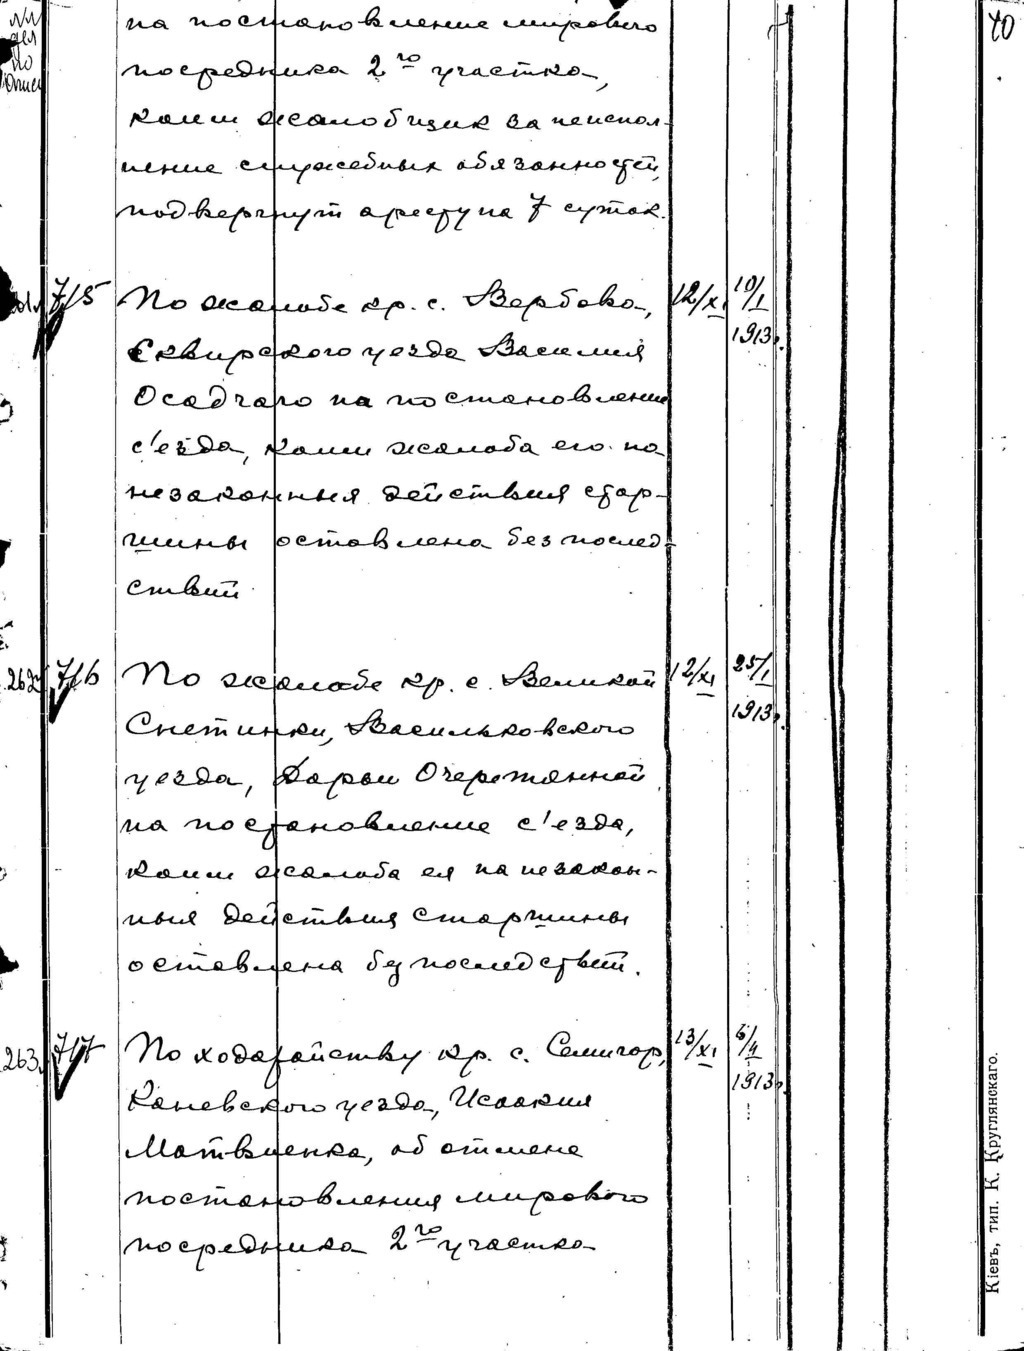 №№ дел по описи
40
на постановление мирового
посредника 2го участка,
коим жалобщик за неиспол-
нение служебных обязанностей,
подвергнут аресту на 7 суток.
715 По жалобе кр. с. Вербова, 12/XI 10/I
Сквирского уезда Василия 1913 г.
Осадчаго на постановление
с'езда, коим жалоба его на
незаконныя действия стар-
шины оставлена без послед-
ствий
262 716 По жалобе кр. с. Великой 12/XI 25/I
Снетинки, Васильковского 1913 г.
уезда, Дарьи Очеретянной,
на постановление с'езда,
коим жалоба ея на незакон-
ныя действия старшины
оставлена без последствий.
263. 717 По ходатайству кр. с. Семигор, 13/XI 6/4
Каневского уезда, Исаакия 1913 г.
Матвиенка, об отмене
постановления мирового
посредника 2го участка
Кіевъ, тип. К. Круглянскаго.